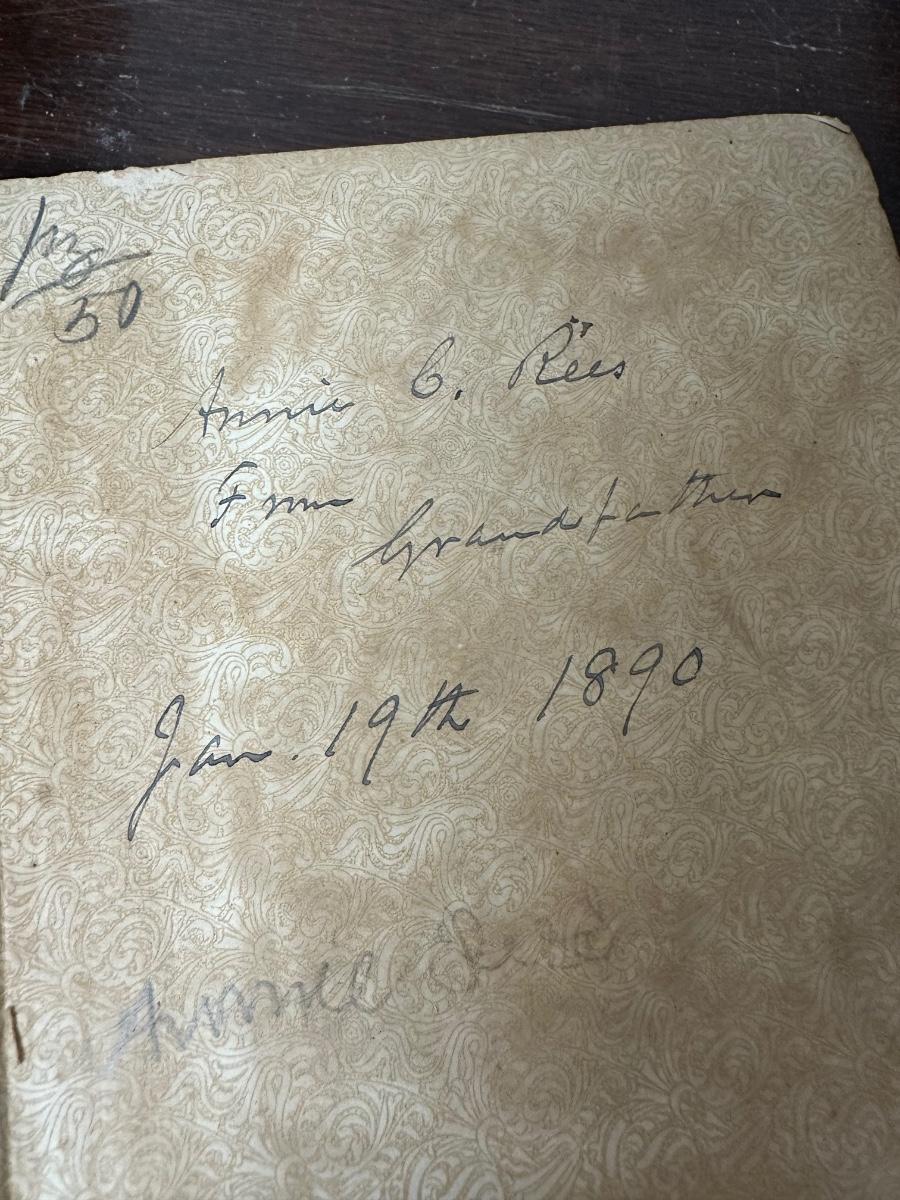 50
Annie C. Rees
From Grandfather
Jan. 19th 1890
Annie